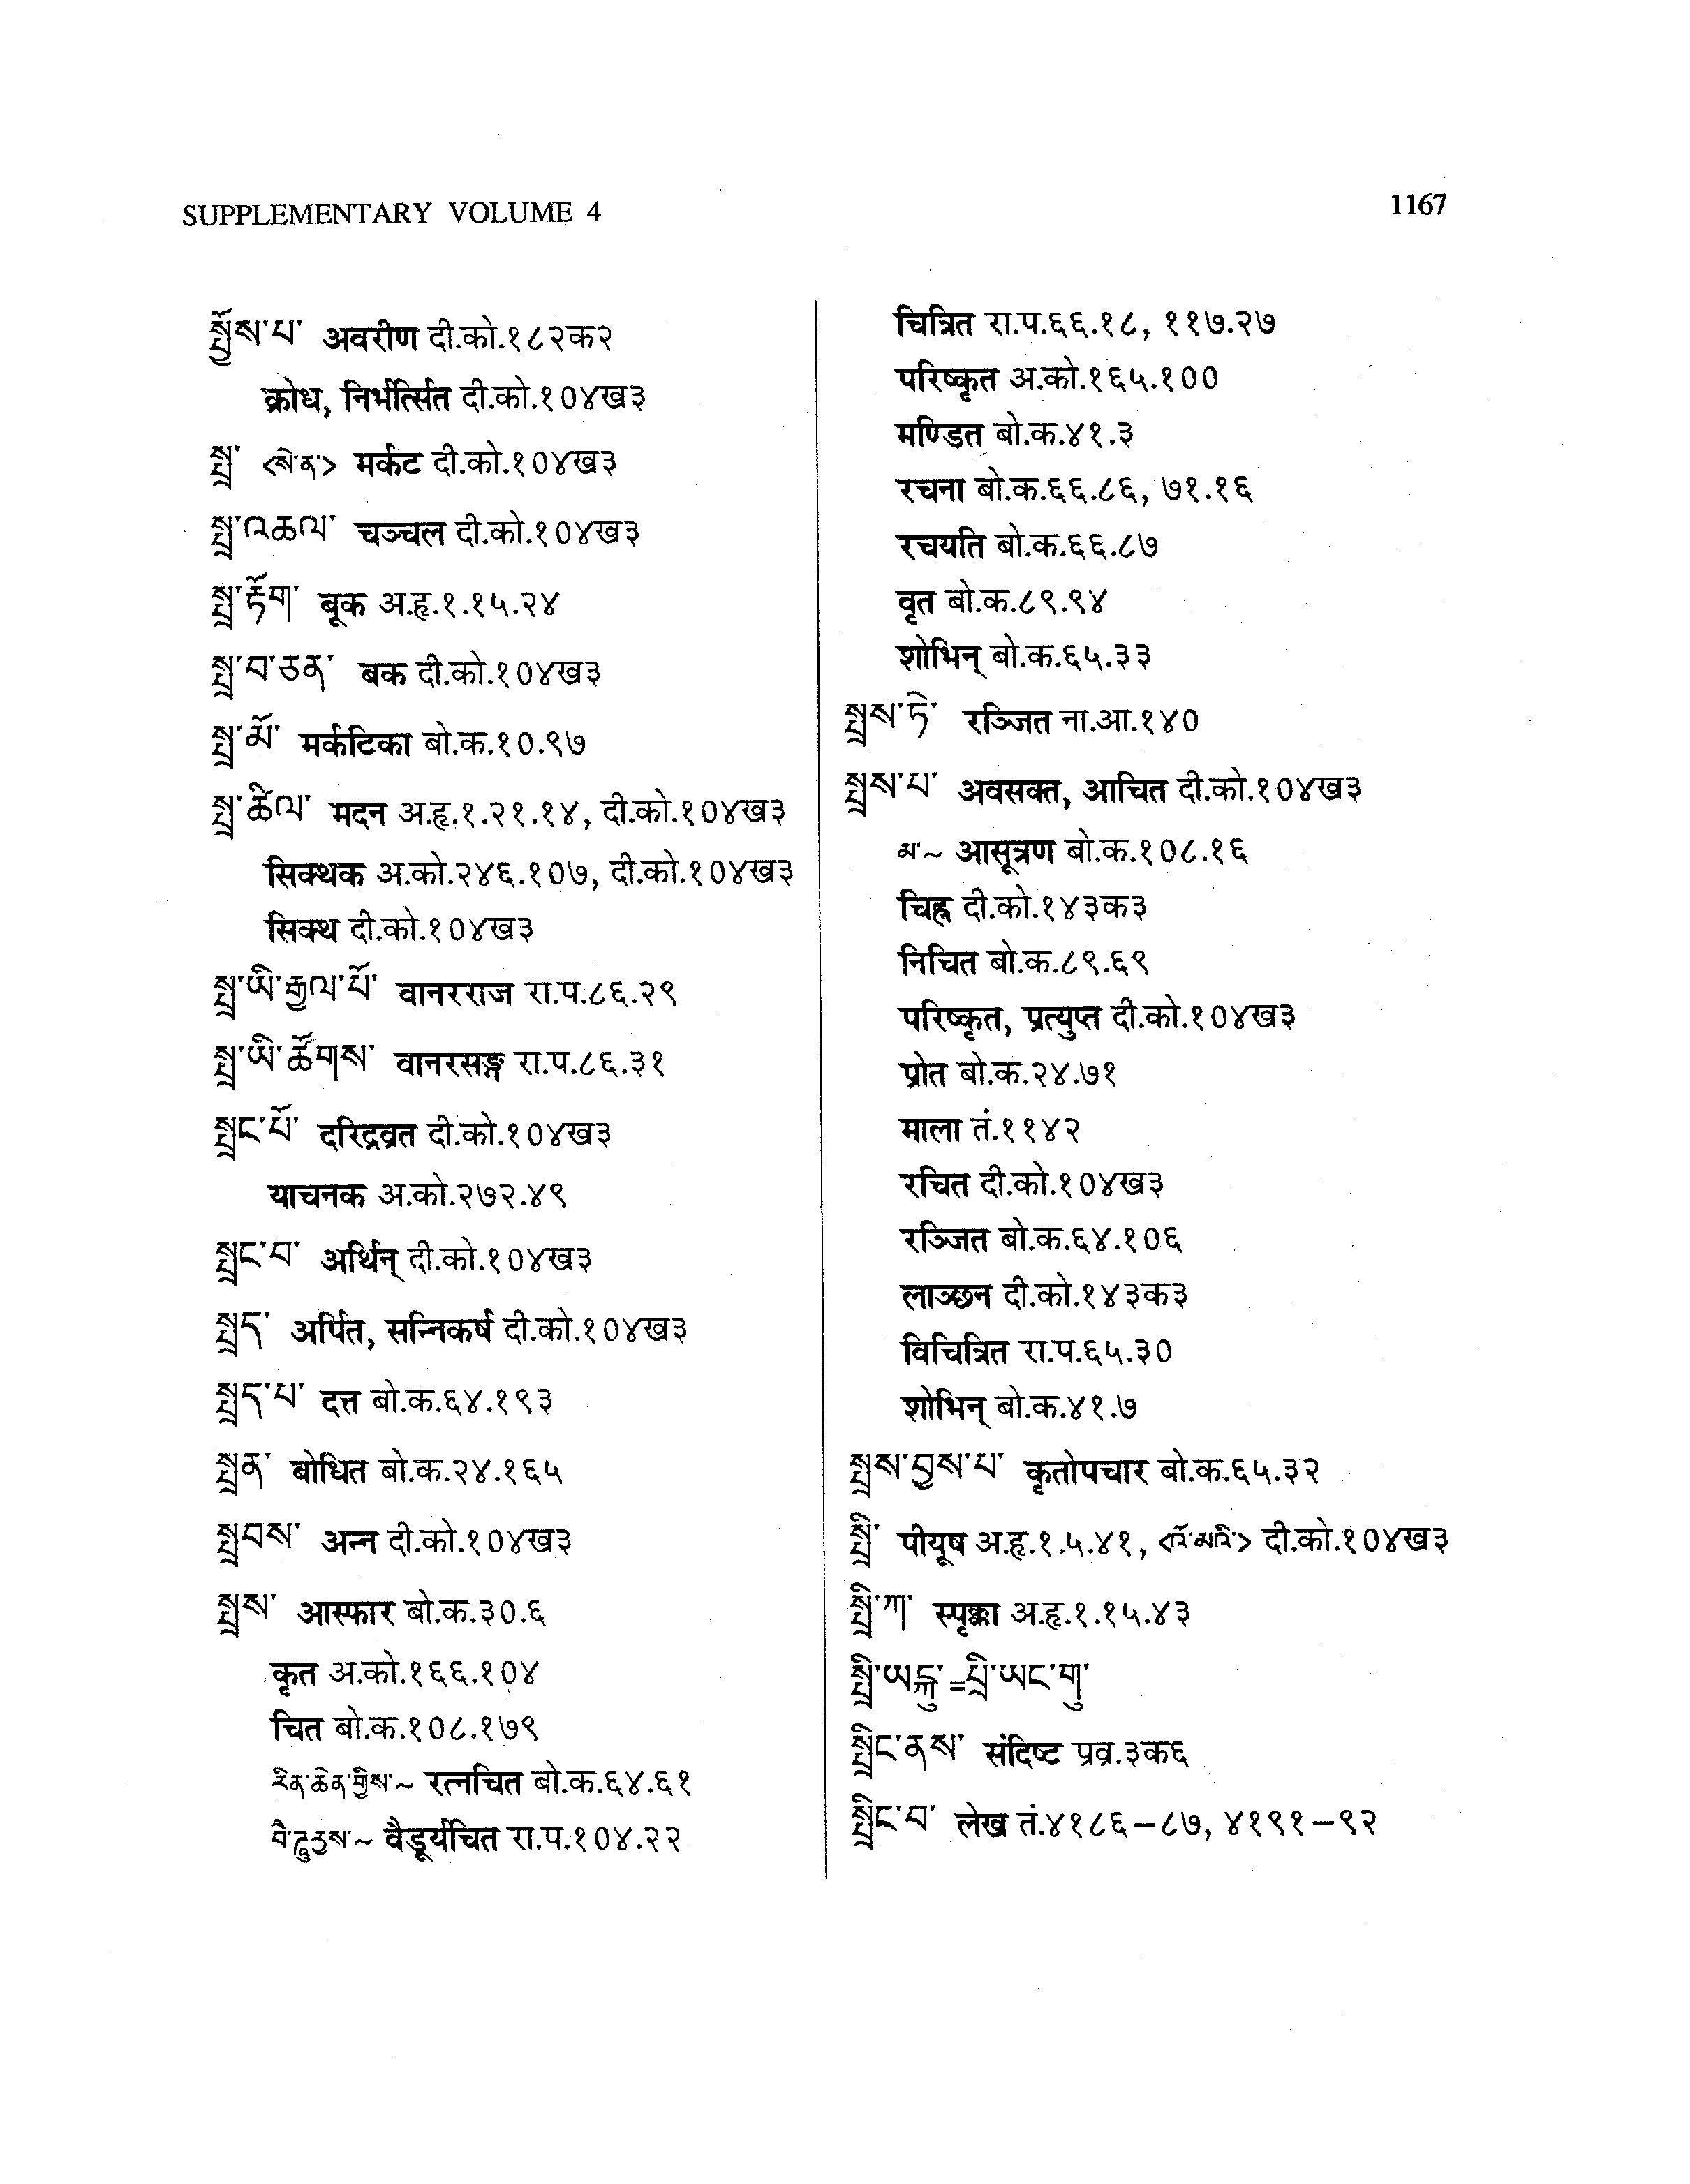 SUPPLEMENTARY VOLUME 4
1167
སྤྱོས་པ་ अवरीण दी.को.१८२क२
क्रोध, निर्भर्त्सित दी.को.१०४ख३
སྤྲ་ <སེན་> मर्कट दी.को.१०४ख३
སྤྲ་འཆལ་ चञ्चल दी.को.१०४ख३
སྤྲ་ཏོག་ बूक अ.हृ.१.१५.२४
སྤྲ་བ་ཅན་ बक दी.को.१०४ख३
སྤྲ་མོ་ मर्कटिका बो.क.१०.९७
སྤྲ་ཚིལ་ मदन अ.हृ.१.२१.१४, दी.को.१०४ख३
सिक्थक अ.को.२४६.१०७, दी.को.१०४ख३
सिक्थ दी.को.१०४ख३
སྤྲ་ཡི་རྒྱལ་པོ་ वानरराज रा.प.८६.२९
སྤྲ་ཡི་ཚོགས་ वानरसङ्ग रा.प.८६.३१
སྤྲང་པོ་ दरिद्रव्रत दी.को.१०४ख३
याचनक अ.को.२७२.४९
སྤྲང་བ་ अर्थिन् दी.को.१०४ख३
སྤྲད་ अर्पित, सन्निकर्ष दी.को.१०४ख३
སྤྲད་པ་ दत्त बो.क.६४.१९३
སྤྲན་ बोधित बो.क.२४.१६५
སྤྲབས་ अन्न दी.को.१०४ख३
སྤྲས་ आस्फार बो.क.३०.६
कृत अ.को.१६६.१०४
चित बो.क.१०८.१७९
རིན་ཆེན་གྱིས་~ रत्नचित बो.क.६४.६१
~ वैडूर्यचित रा.प.१०४.२२
चित्रित रा.प.६६.१८, ११७.२७
परिष्कृत अ.को.१६५.१००
मण्डित बो.क.४१.३
रचना बो.क.६६.८६, ७१.१६
रचयति बो.क.६६.८७
वृत बो.क.८९.९४
शोभिन् बो.क.६५.३३
སྤྲས་ཏེ་ रञ्जित ना.आ.१४०
སྤྲས་པ་ अवसक्त, आचित दी.को.१०४ख३
མ་~ आसूत्रण बो.क.१०८.१६
चिह्न दी.को.१४३क३
निचित बो.क.८९.६९
परिष्कृत, प्रत्युप्त दी.को.१०४ख३
प्रोत बो.क.२४.७१
माला तं.११४२
रचित दी.को.१०४ख३
रञ्जित बो.क.६४.१०६
लाञ्छन दी.को.१४३क३
विचित्रित रा.प.६५.३०
शोभिन् बो.क.४१.७
སྤྲས་བྱས་པ་ कृतोपचार बो.क.६५.३२
སྤྲི་ पीयूष अ.हृ.१.५.४१, <འོ་མའི་> दी.को.१०४ख३
སྤྲི་ཀ་ स्पृक्का अ.हृ.१.१५.४३
སྤྲི་ཡངྐུ་=པྲི་ཡང་གུ་
སྤྲིང་ནས་ संदिष्ट प्रव्र.३क६
སྤྲིང་བ་ लेख तं.४१८६–८७, ४१९१–९२